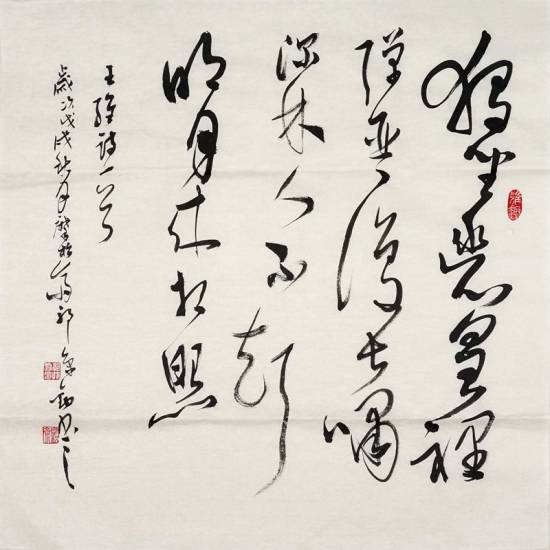 獨坐幽篁裡
彈琴復長嘯
深林人不知
明月来相照
王維詩一首
歲次戊戌秋月